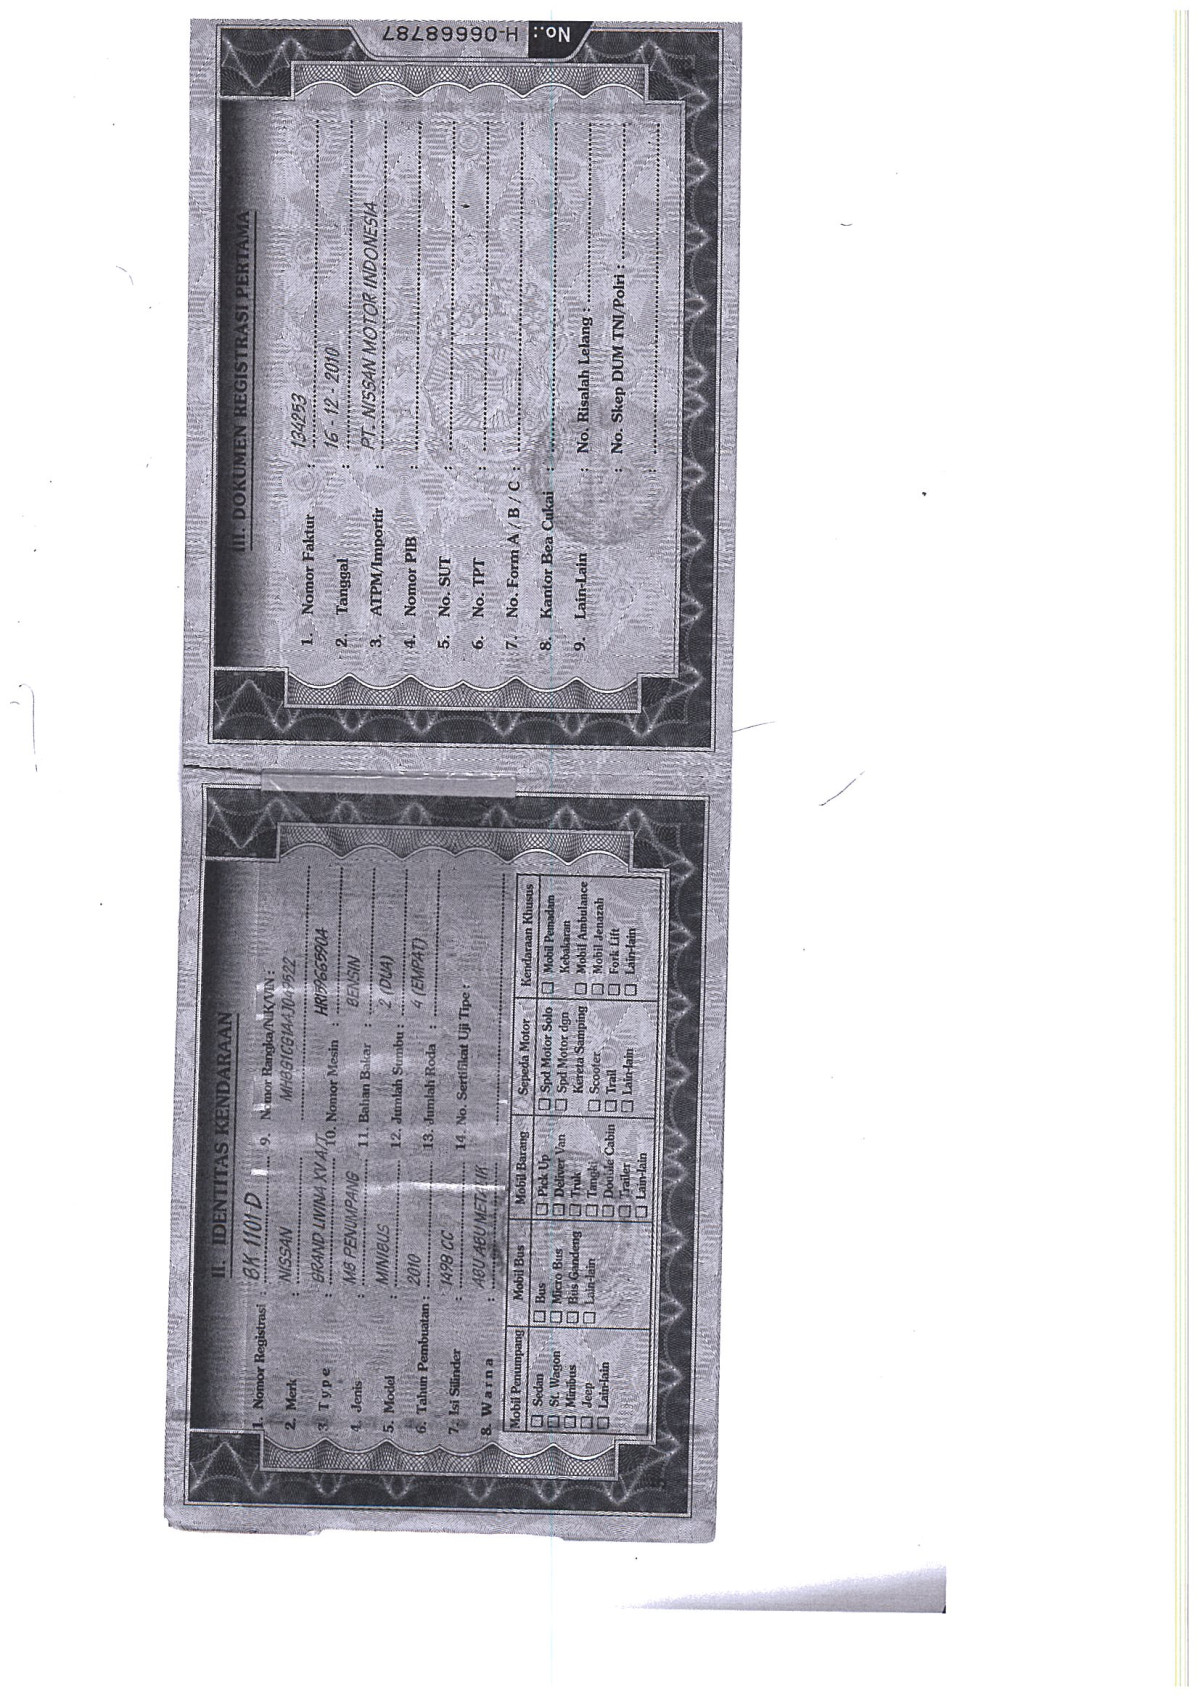 II. IDENTITAS KENDARAAN
1. Nomor Registrasi : BK 1101 D
2. Merk : NISSAN
3. Type : GRAND LIVINA XV A/T
4. Jenis : MB PENUMPANG
5. Model : MINIBUS
6. Tahun Pembuatan : 2010
7. Isi Silinder : 1498 CC
8. Warna : ABU ABU METALIK
9. Nomor Rangka/NIK/VIN :
10. Nomor Mesin : HR15966590A
11. Bahan Bakar : BENSIN
12. Jumlah Sumbu : 2 (DUA)
13. Jumlah Roda : 4 (EMPAT)
14. No. Sertifikat Uji Tipe :
Mobil Penumpang
Sedan
St. Wagon
Minibus
Jeep
Lain-lain
Mobil Bus
Bus
Micro Bus
Bus Gandeng
Lain-lain
Mobil Barang
Pick Up
Deliver Van
Truk
Tangki
Double Cabin
Trailer
Lain-lain
Sepeda Motor
Spd Motor Solo
Spd Motor dgn
Kereta Samping
Scooter
Trail
Lain-lain
Kendaraan Khusus
Mobil Pemadam
Kebakaran
Mobil Ambulance
Mobil Jenazah
Fork Lift
Lain-lain
III. DOKUMEN REGISTRASI PERTAMA
1. Nomor Faktur : 134253
2. Tanggal : 16 - 12 - 2010
3. ATPM/Importir : PT. NISSAN MOTOR INDONESIA
4. Nomor PIB :
5. No. SUT :
6. No. TPT :
7. No. Form A / B / C :
8. Kantor Bea Cukai :
9. Lain-Lain : No. Risalah Lelang :
: No. Skep DUM TNI/Polri :
:
No.: H-06668787